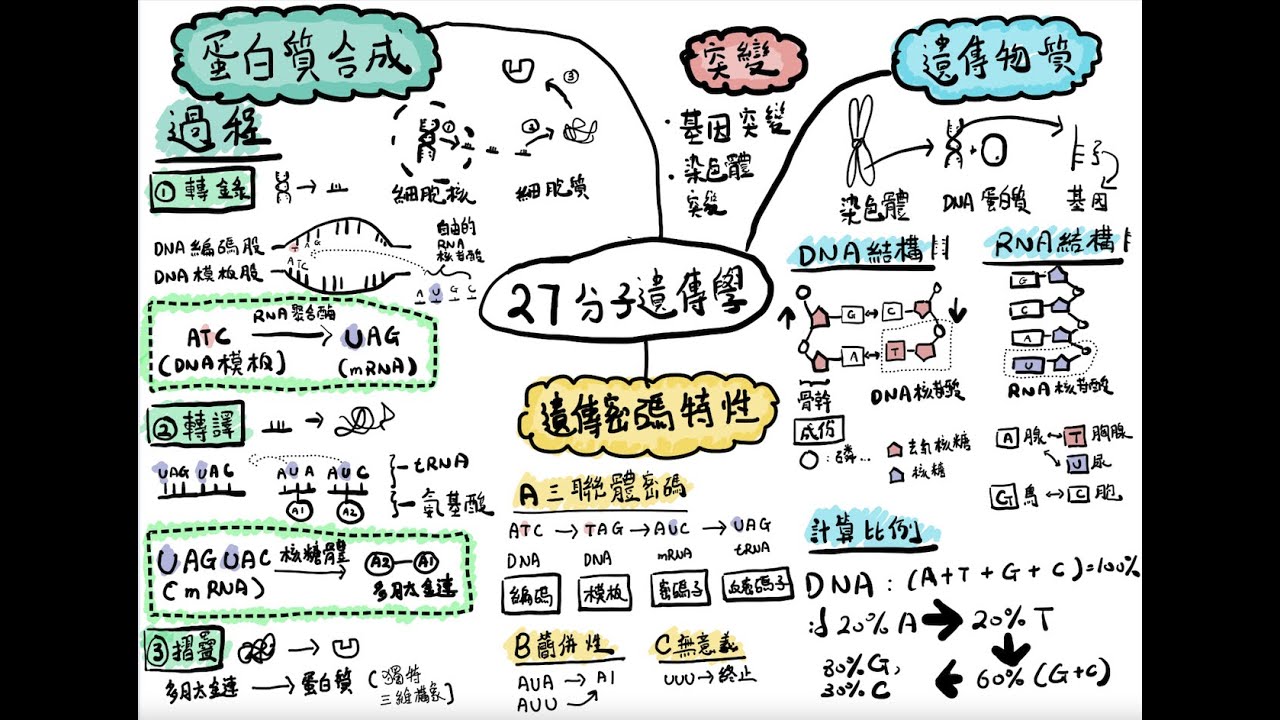 蛋白質合成
突變
遺傳物質
27分子遺傳學
遺傳密碼特性
過程
① 轉錄
①
②
③
細胞核
細胞質
DNA 編碼股
DNA 模板股
T A G
ATC
自由的
RNA
核苷酸
A U G C
RNA聚合酶
ATC → UAG
(DNA模板)
(mRNA)
② 轉譯
UAG UAC
AUA AUC
A1 A2
tRNA
氨基酸
UAGUAC 核糖體 A2—A1
(mRNA)
多肽鏈
③ 摺疊
多肽鏈 → 蛋白質 (獨特
三維構象)
・基因突變
・染色體
突變
染色體
DNA 蛋白質
基因
DNA結構
RNA結構
G ↔ C
A ↔ T
骨幹
DNA核苷酸
G
C
A
U
RNA核苷酸
成份
:磷...
去氧核糖
核糖
A 腺 ↔ T 胸腺
U 尿
G 鳥 ↔ C 胞
A 三聯體密碼
ATC → TAG → AUC → UAG
DNA DNA mRNA tRNA
編碼 模板 密碼子 反密碼子
B 簡併性
AUA → A1
AUU
C 無意義
UUU → 終止
計算比例
DNA : (A+T+G+C)=100%
20%A → 20%T
60%(G+C)
30%G,
30%C